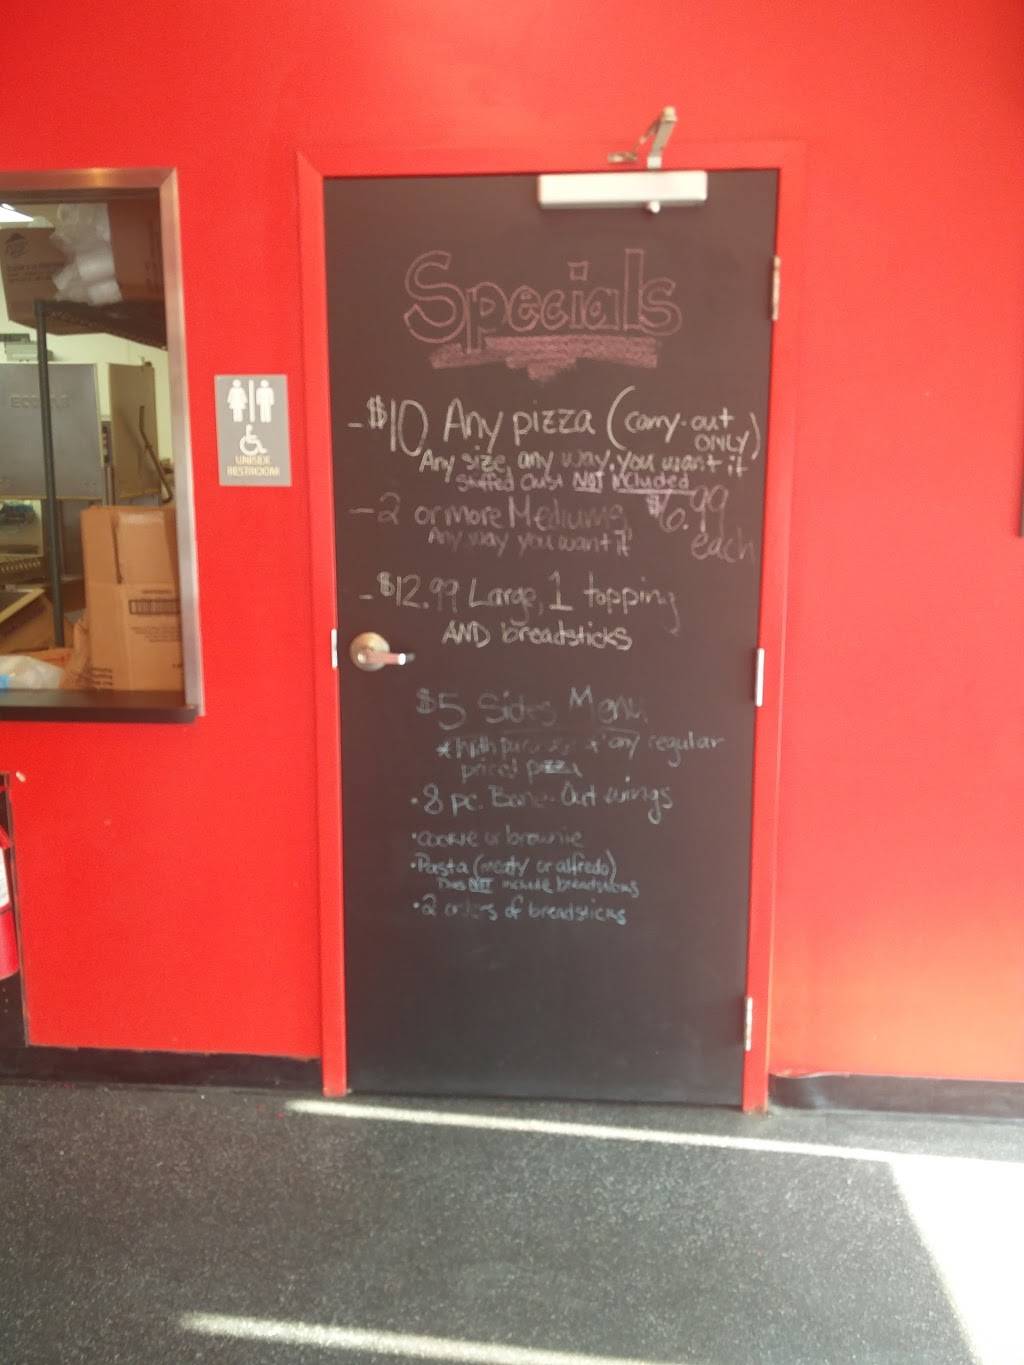 Specials
-$10 Any pizza (carry-out ONLY)
Any size, any way, you want it
stuffed crust NOT included
-2 or more Mediums $6.99 each
Any way you want it
-$12.99 Large, 1 topping
AND breadsticks
$5 Sides Menu
*with purchase of any regular
priced pizza
•8 pc. Bone-Out wings
•cookie or brownie
•Pasta (meaty or alfredo)
Does NOT include breadsticks
•2 orders of breadsticks
UNISEX
RESTROOM